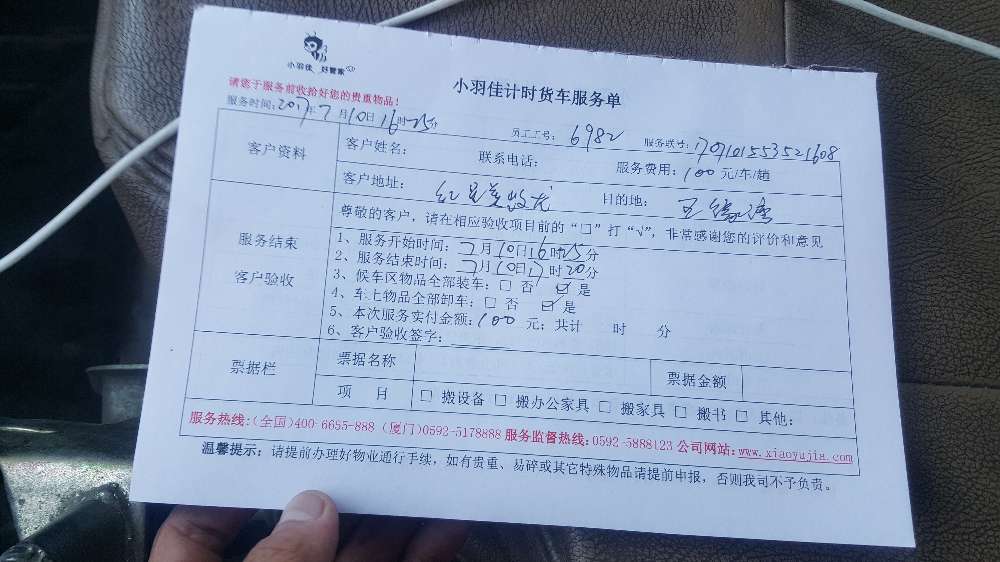 小羽佳 好管家
请您于服务前收拾好您的贵重物品！
小羽佳计时货车服务单
服务时间：2017年7月10日16时25分 员工工号：6982 服务联号：1707101553521608
客户资料
客户姓名： 联系电话： 服务费用：100元/车/趟
客户地址：红星美凯龙 目的地：
服务结束
客户验收
尊敬的客户，请在相应验收项目前的“□”打“√”，非常感谢您的评价和意见
1、服务开始时间：7月10日16时25分
2、服务结束时间：7月10日17时20分
3、候车区物品全部装车：□ 否 ☑ 是
4、车上物品全部卸车：□ 否 ☑ 是
5、本次服务实付金额：100元；共计 时 分
6、客户验收签字：
票据栏
票据名称 票据金额
项 目 □ 搬设备 □ 搬办公家具 □ 搬家具 □ 搬书 □ 其他：
服务热线：(全国)400-6655-888 (厦门)0592-5178888 服务监督热线：0592-5888123 公司网站：www.xiaoyujia.com
温馨提示：请提前办理好物业通行手续，如有贵重、易碎或其它特殊物品请提前申报，否则我司不予负责。